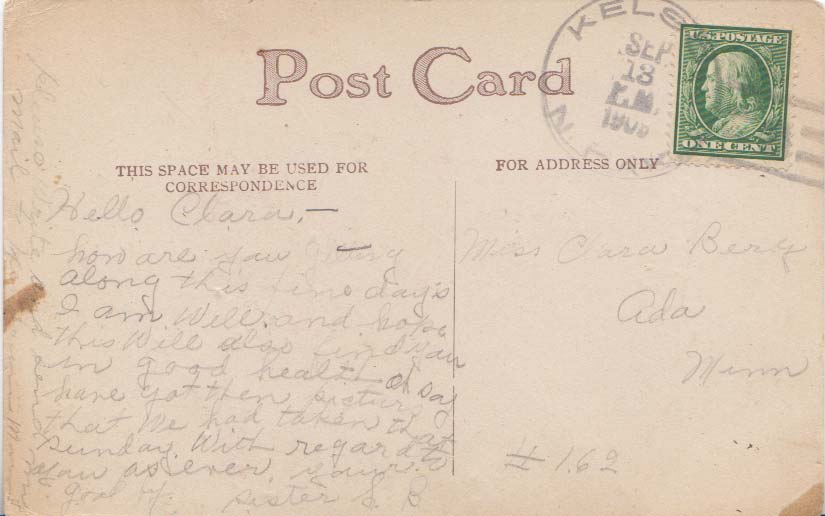 Post Card
THIS SPACE MAY BE USED FOR
CORRESPONDENCE
FOR ADDRESS ONLY
KELS
SEP
18
1909
U.S. POSTAGE
ONE CENT
Hello Clara,—
how are you
along this fine day's
I am Well and hope
this Will also find you
in good health. O Say
have got then picture
that We had taken that
Sunday. With regard to
you as ever your
good by. Sister S. B
Miss Clara Berg
Ada
Minn
# 162
Write and send my
mail to